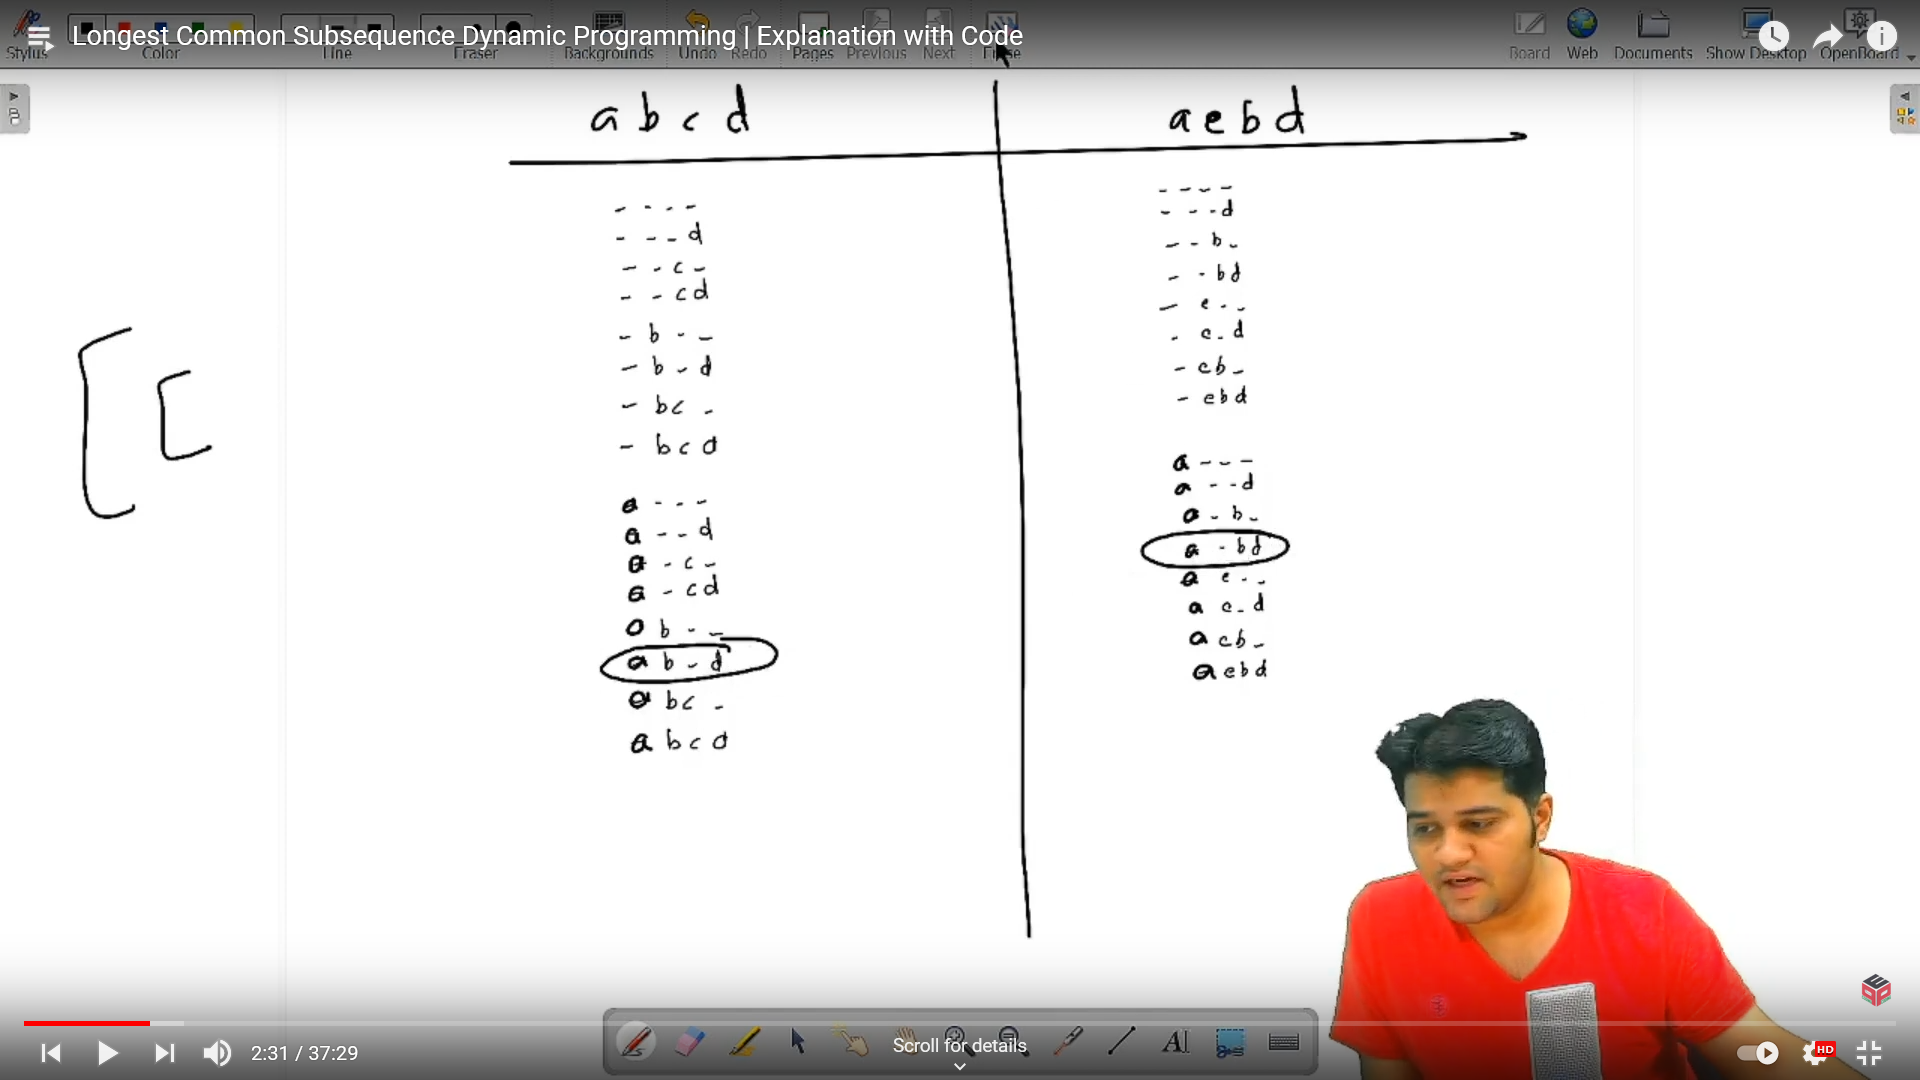 Longest Common Subsequence Dynamic Programming | Explanation with Code
Stylus Color Line Eraser Backgrounds Undo Redo Pages Previous Next Erase Board Web Documents Show Desktop OpenBoard
a b c d
a e b d
- - - -
- - - d
- - c -
- - c d
- b - -
- b - d
- b c -
- b c d
a - - -
a - - d
a - c -
a - c d
a b - -
a b - d
a b c -
a b c d
- - - -
- - - d
- - b -
- - b d
- e - -
- e - d
- e b -
- e b d
a - - -
a - - d
a - b -
a - b d
a e - -
a e - d
a e b -
a e b d
Scroll for details
2:31 / 37:29
HD